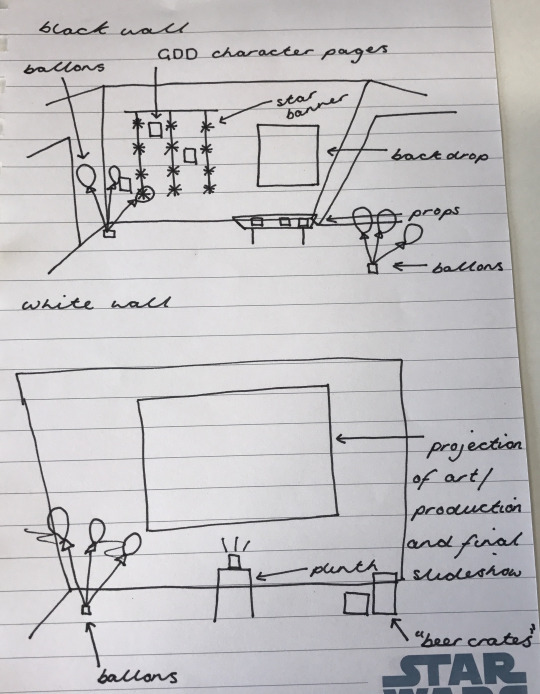 black wall
GDD character pages
ballons
star
banner
backdrop
props
ballons
white wall
projection
of art/
production
and final
slideshow
plinth
"beer crates"
ballons
STAR